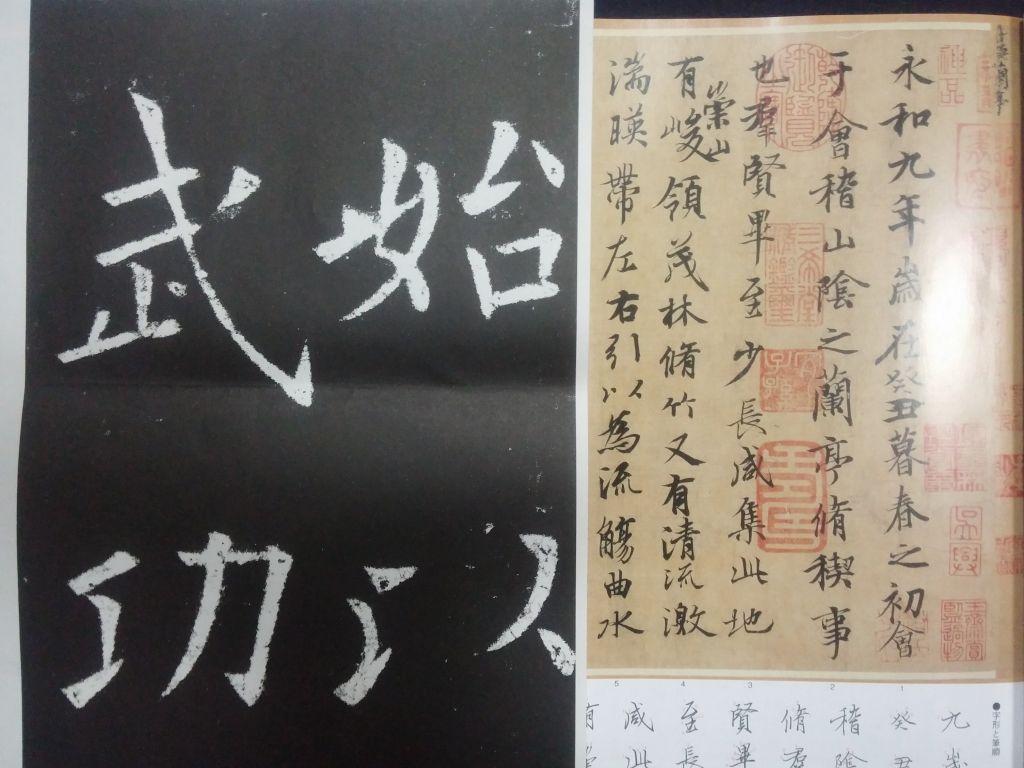 永和九年歲在癸丑暮春之初會
于會稽山陰之蘭亭脩稧事
也羣賢畢至少長咸集此地
有崇山峻領茂林脩竹又有清流激
湍暎帶左右引以為流觴曲水
●字形と筆順
1
2
3
4
5
九歲
癸丑
稽陰
脩羣
賢畢
至長
咸此
有
始以
武功